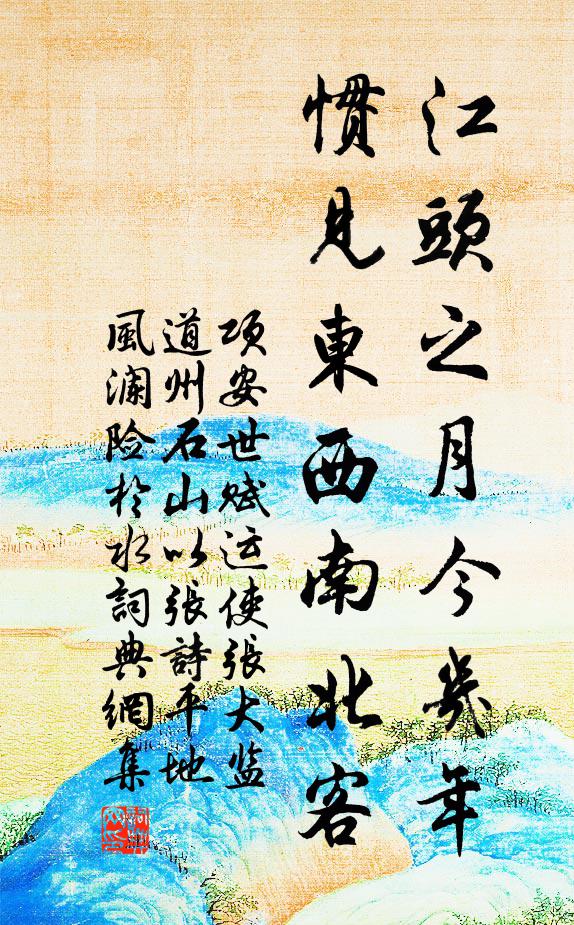 江頭之月今幾年
慣見東西南北客
项安世赋运使张大监
道州石山以張詩平地
風澜险於水詞典網集